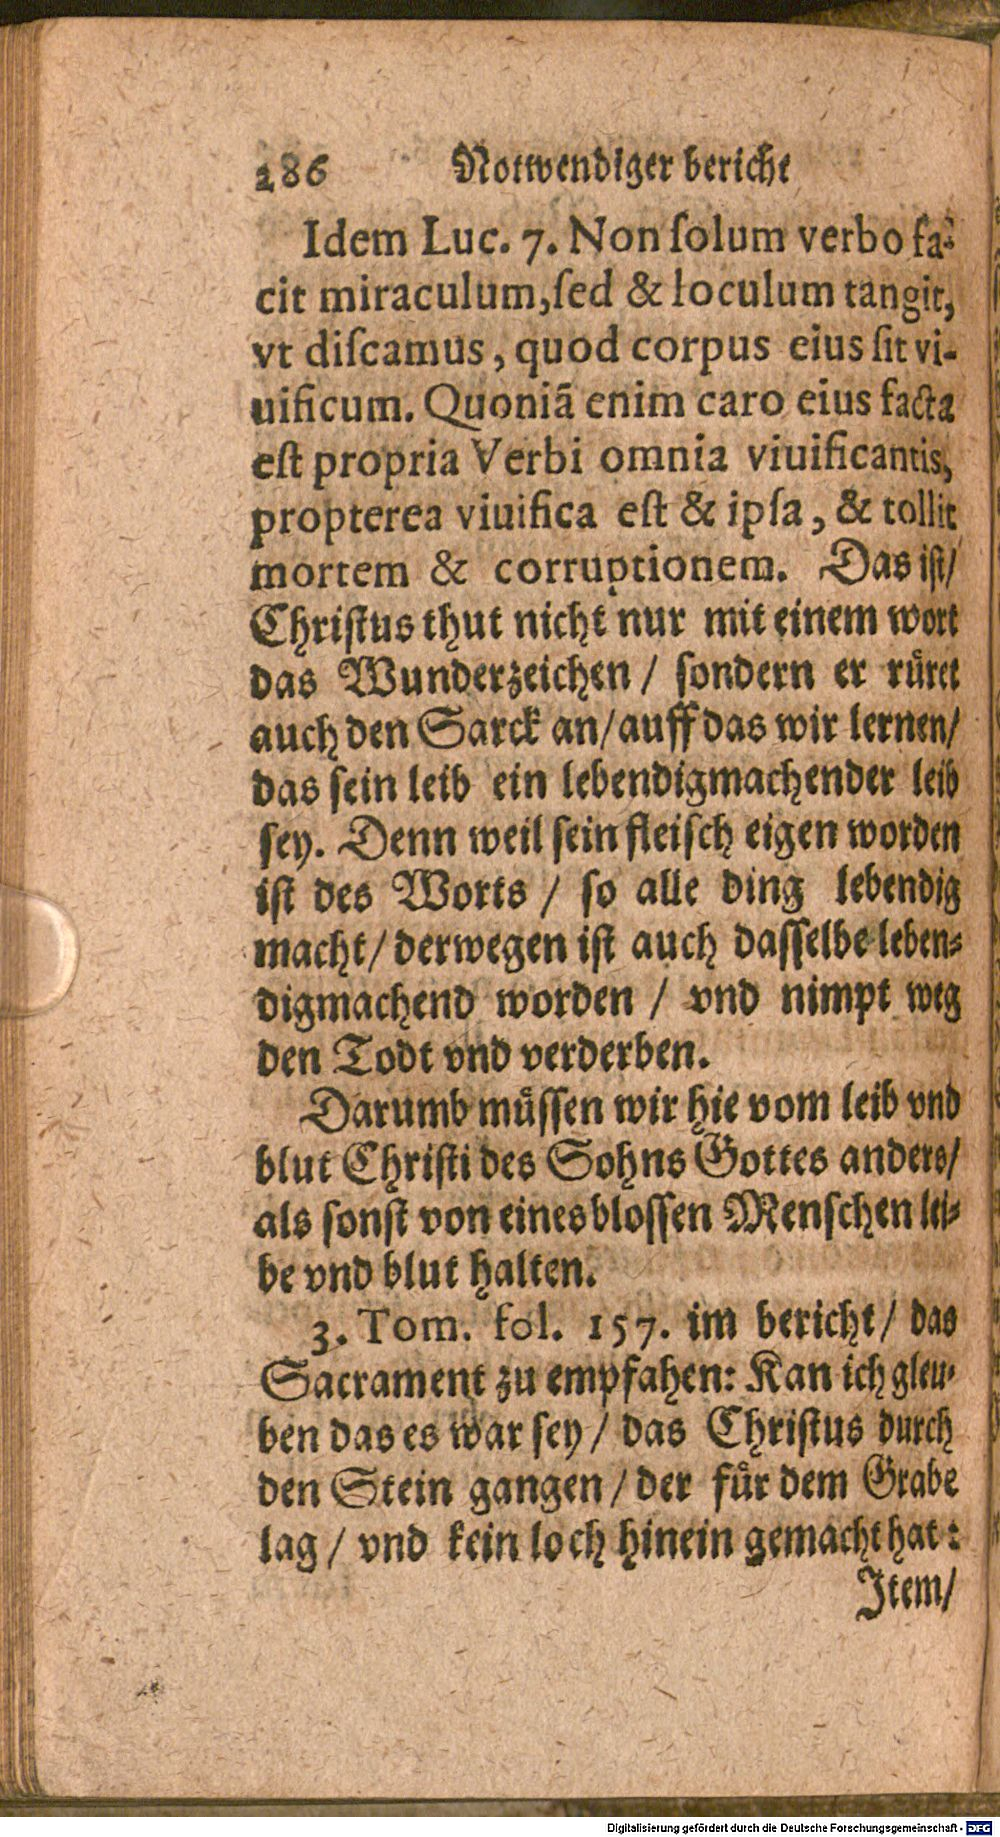 186 Notwendiger bericht
Idem Luc. 7. Non ſolum verbo fa-
cit miraculum, ſed & loculum tangit,
vt diſcamus, quod corpus eius ſit vi-
uificum. Quoniã enim caro eius facta
eſt propria Verbi omnia viuificantis,
propterea viuifica eſt & ipſa, & tollit
mortem & corruptionem. Das iſt/
Chriſtus thut nicht nur mit einem wort
das Wunderzeichen / ſondern er ruͤret
auch den Sarck an/ auff das wir lernen/
das ſein leib ein lebendigmachender leib
ſey. Denn weil ſein fleiſch eigen worden
iſt des Worts / ſo alle ding lebendig
macht/ derwegen iſt auch daſſelbe leben-
digmachend worden / vnd nimpt weg
den Todt vnd verderben.
Darumb muͤſſen wir hie vom leib vnd
blut Chriſti des Sohns Gottes anders/
als ſonſt von eines bloſſen Menſchen lei-
be vnd blut halten.
3. Tom. fol. 157. im bericht/ das
Sacrament zu empfahen: Kan ich gleu-
ben das es war ſey / das Chriſtus durch
den Stein gangen / der fuͤr dem Grabe
lag / vnd kein loch hinein gemacht hat:
Item/
Digitalisierung gefördert durch die Deutsche Forschungsgemeinschaft - DFG